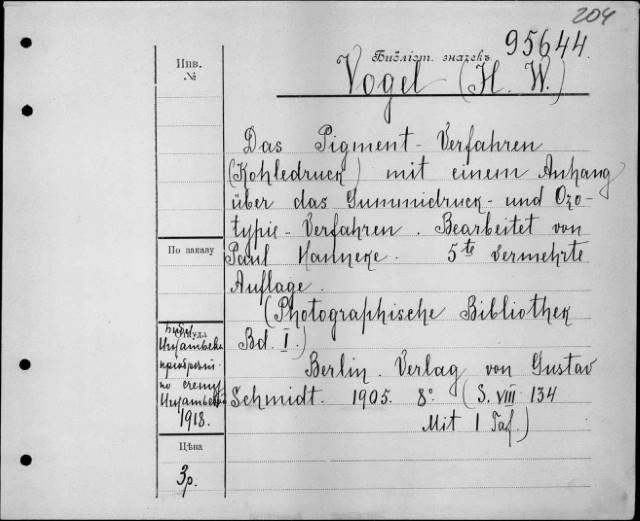 204
95644.
Инв.
№
Библіот. значекъ
Vogel (H. W.)
Das Pigment-Verfahren
(Kohledruck) mit einem Anhang
über das Gummidruck- und Ozo-
typie-Verfahren. Bearbeitet von
По заказу
Paul Hanneke. 5te vermehrte
Auflage.
(Photographische Bibliothek
Откуда
Bd. I.)
приобрет.
по счету
1918.
Berlin. Verlag von Gustav
Schmidt. 1905. 8° (S. VIII 134
Mit 1 Taf.)
Цѣна
3р.